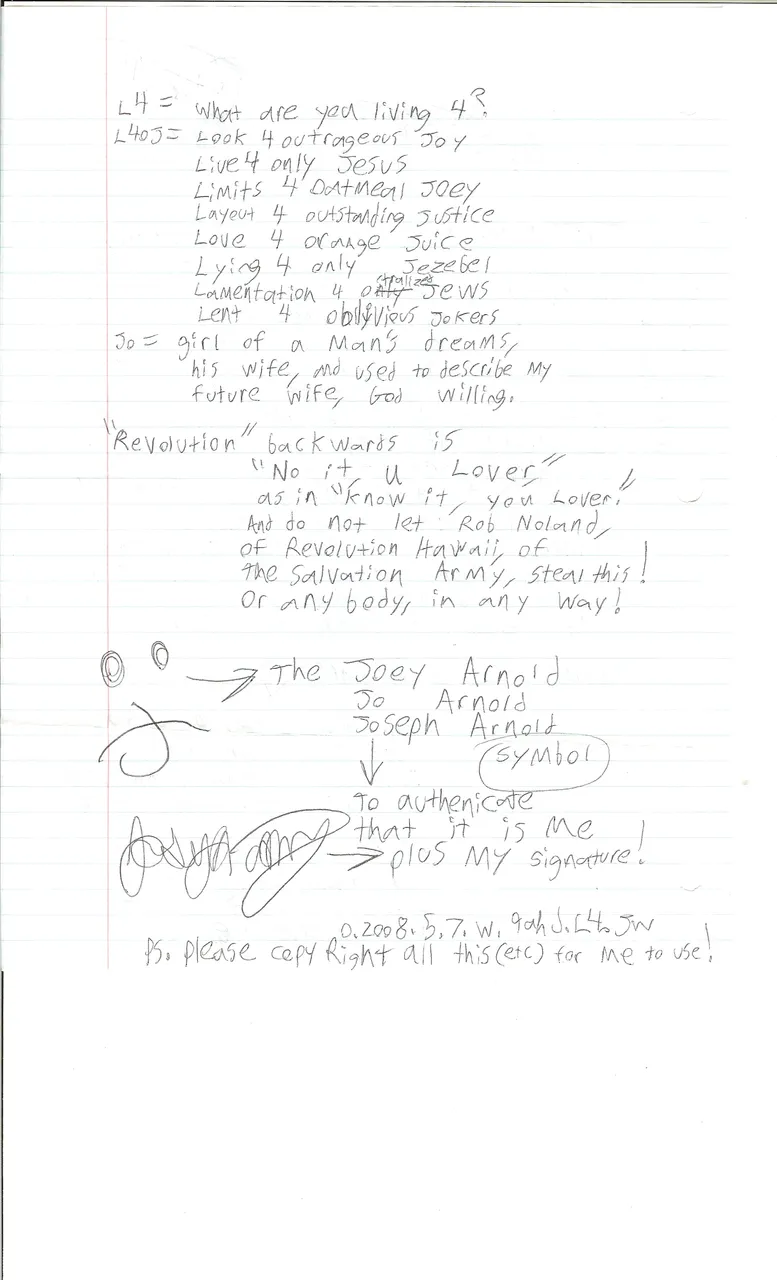 L4 = What are you living 4?
L4OJ = Look 4 outrageous Joy
Live 4 only Jesus
Limits 4 Oatmeal Joey
Layout 4 outstanding justice
Love 4 orange Juice
Lying 4 only Jezebel
Lamentation 4 only Jews
Lent 4 oblivious Jokers
Jo = girl of a Man's dreams,
his wife, and used to describe My
future wife, God willing.
"Revolution" backwards is
"No it, u Lover,"
as in "know it, you Lover."
And do not let Rob Noland,
of Revolution Hawaii, of
the Salvation Army, steal this!
Or any body, in any way!
The Joey Arnold
Jo Arnold
Joseph Arnold
Symbol
To authenicate
that it is Me
plus My signature!
0.2008.5.7.W. 9ah J.L4. JW
Ps. Please copy Right all this (etc) for Me to use!